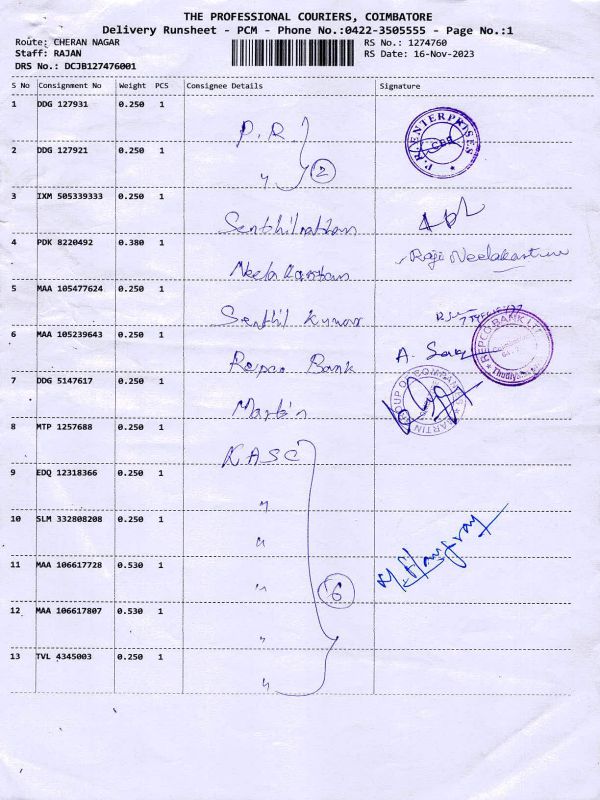 THE PROFESSIONAL COURIERS, COIMBATORE
Delivery Runsheet - PCM - Phone No.:0422-3505555 - Page No.:1
Route: CHERAN NAGAR RS No.: 1274760
Staff: RAJAN RS Date: 16-Nov-2023
DRS No.: DCJB127476001
S No Consignment No Weight PCS Consignee Details Signature
1 DDG 127931 0.250 1 P.R
2 DDG 127921 0.250 1 " 2
P.R. ENTERPRISES CBE
3 IXM 505339333 0.250 1 Senthilnathan
4 PDK 8220492 0.380 1 Neelakantan Raji Neelakantan
5 MAA 105477624 0.250 1 Senthil Kumar
6 MAA 105239643 0.250 1 Repco Bank A.
REPCO BANK LTD
7 DDG 5147617 0.250 1 Martin
MARTIN GROUP OF COMPANIES
8 MTP 1257688 0.250 1 KASC
9 EDQ 12318366 0.250 1 "
10 SLM 332808208 0.250 1 "
11 MAA 106617728 0.530 1 " 6
12 MAA 106617807 0.530 1 "
13 TVL 4345003 0.250 1 "